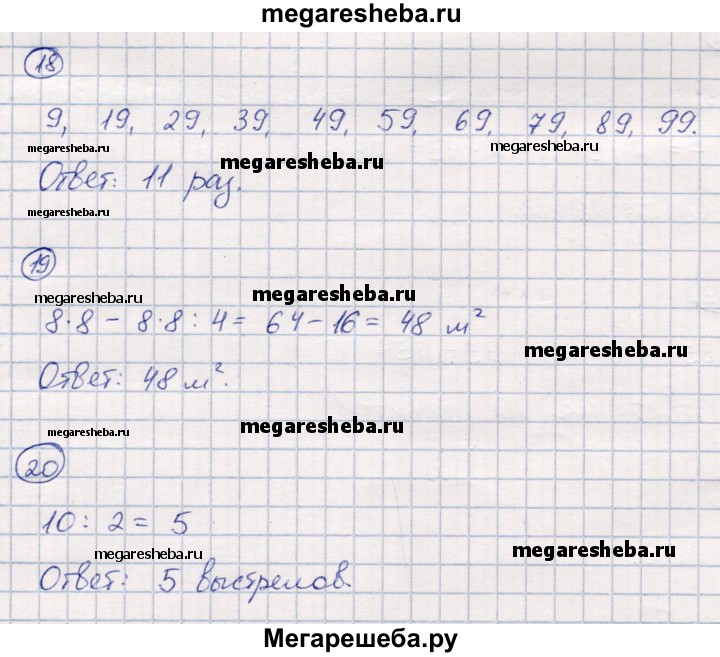 megaresheba.ru
18
9, 19, 29, 39, 49, 59, 69, 79, 89, 99.
megaresheba.ru megaresheba.ru megaresheba.ru
Ответ: 11 раз.
megaresheba.ru
19
megaresheba.ru megaresheba.ru
8·8 - 8·8 : 4 = 64 - 16 = 48 м²
megaresheba.ru
Ответ: 48 м².
megaresheba.ru megaresheba.ru
20
10 : 2 = 5
megaresheba.ru megaresheba.ru
Ответ: 5 выстрелов.
Мегарешеба.ру